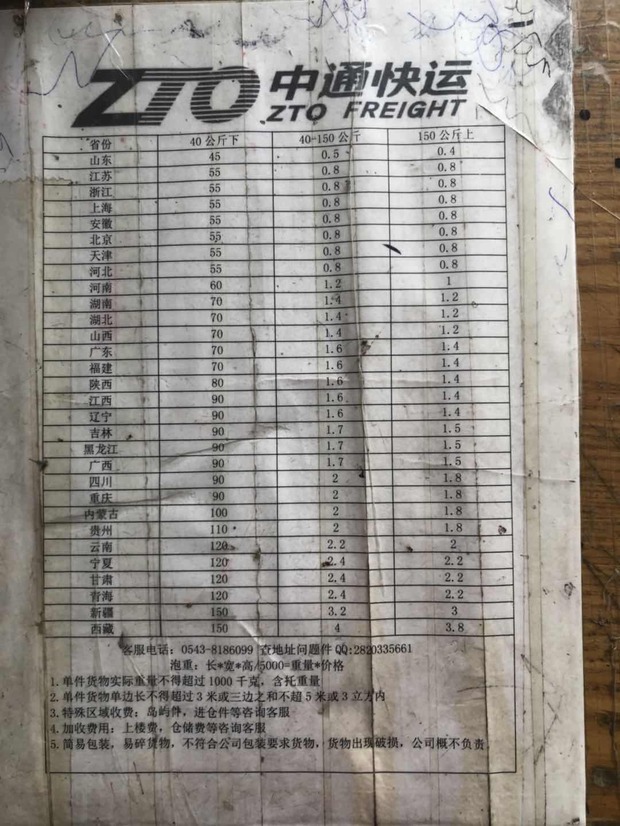 ZTO 中通快运
ZTO FREIGHT
省份 40公斤下 40-150公斤 150公斤上
山东 45 0.5 0.4
江苏 55 0.8 0.8
浙江 55 0.8 0.8
上海 55 0.8 0.8
安徽 55 0.8 0.8
北京 55 0.8 0.8
天津 55 0.8 0.8
河北 55 0.8 0.8
河南 60 1.2 1
湖南 70 1.4 1.2
湖北 70 1.4 1.2
山西 70 1.4 1.2
广东 70 1.6 1.4
福建 70 1.6 1.4
陕西 80 1.6 1.4
江西 90 1.6 1.4
辽宁 90 1.6 1.4
吉林 90 1.7 1.5
黑龙江 90 1.7 1.5
广西 90 1.7 1.5
四川 90 2 1.8
重庆 90 2 1.8
内蒙古 100 2 1.8
贵州 110 2 1.8
云南 120 2.2 2
宁夏 120 2.4 2.2
甘肃 120 2.4 2.2
青海 120 2.4 2.2
新疆 150 3.2 3
西藏 150 4 3.8
客服电话：0543-8186099 查地址问题件QQ:2820335661
泡重：长*宽*高/5000=重量*价格
1.单件货物实际重量不得超过1000千克，含托重量
2.单件货物单边长不得超过3米或三边之和不超5米或3立方内
3.特殊区域收费：岛屿件，进仓件等咨询客服
4.加收费用：上楼费，仓储费等咨询客服
5.简易包装，易碎货物，不符合公司包装要求货物，货物出现破损，公司概不负责